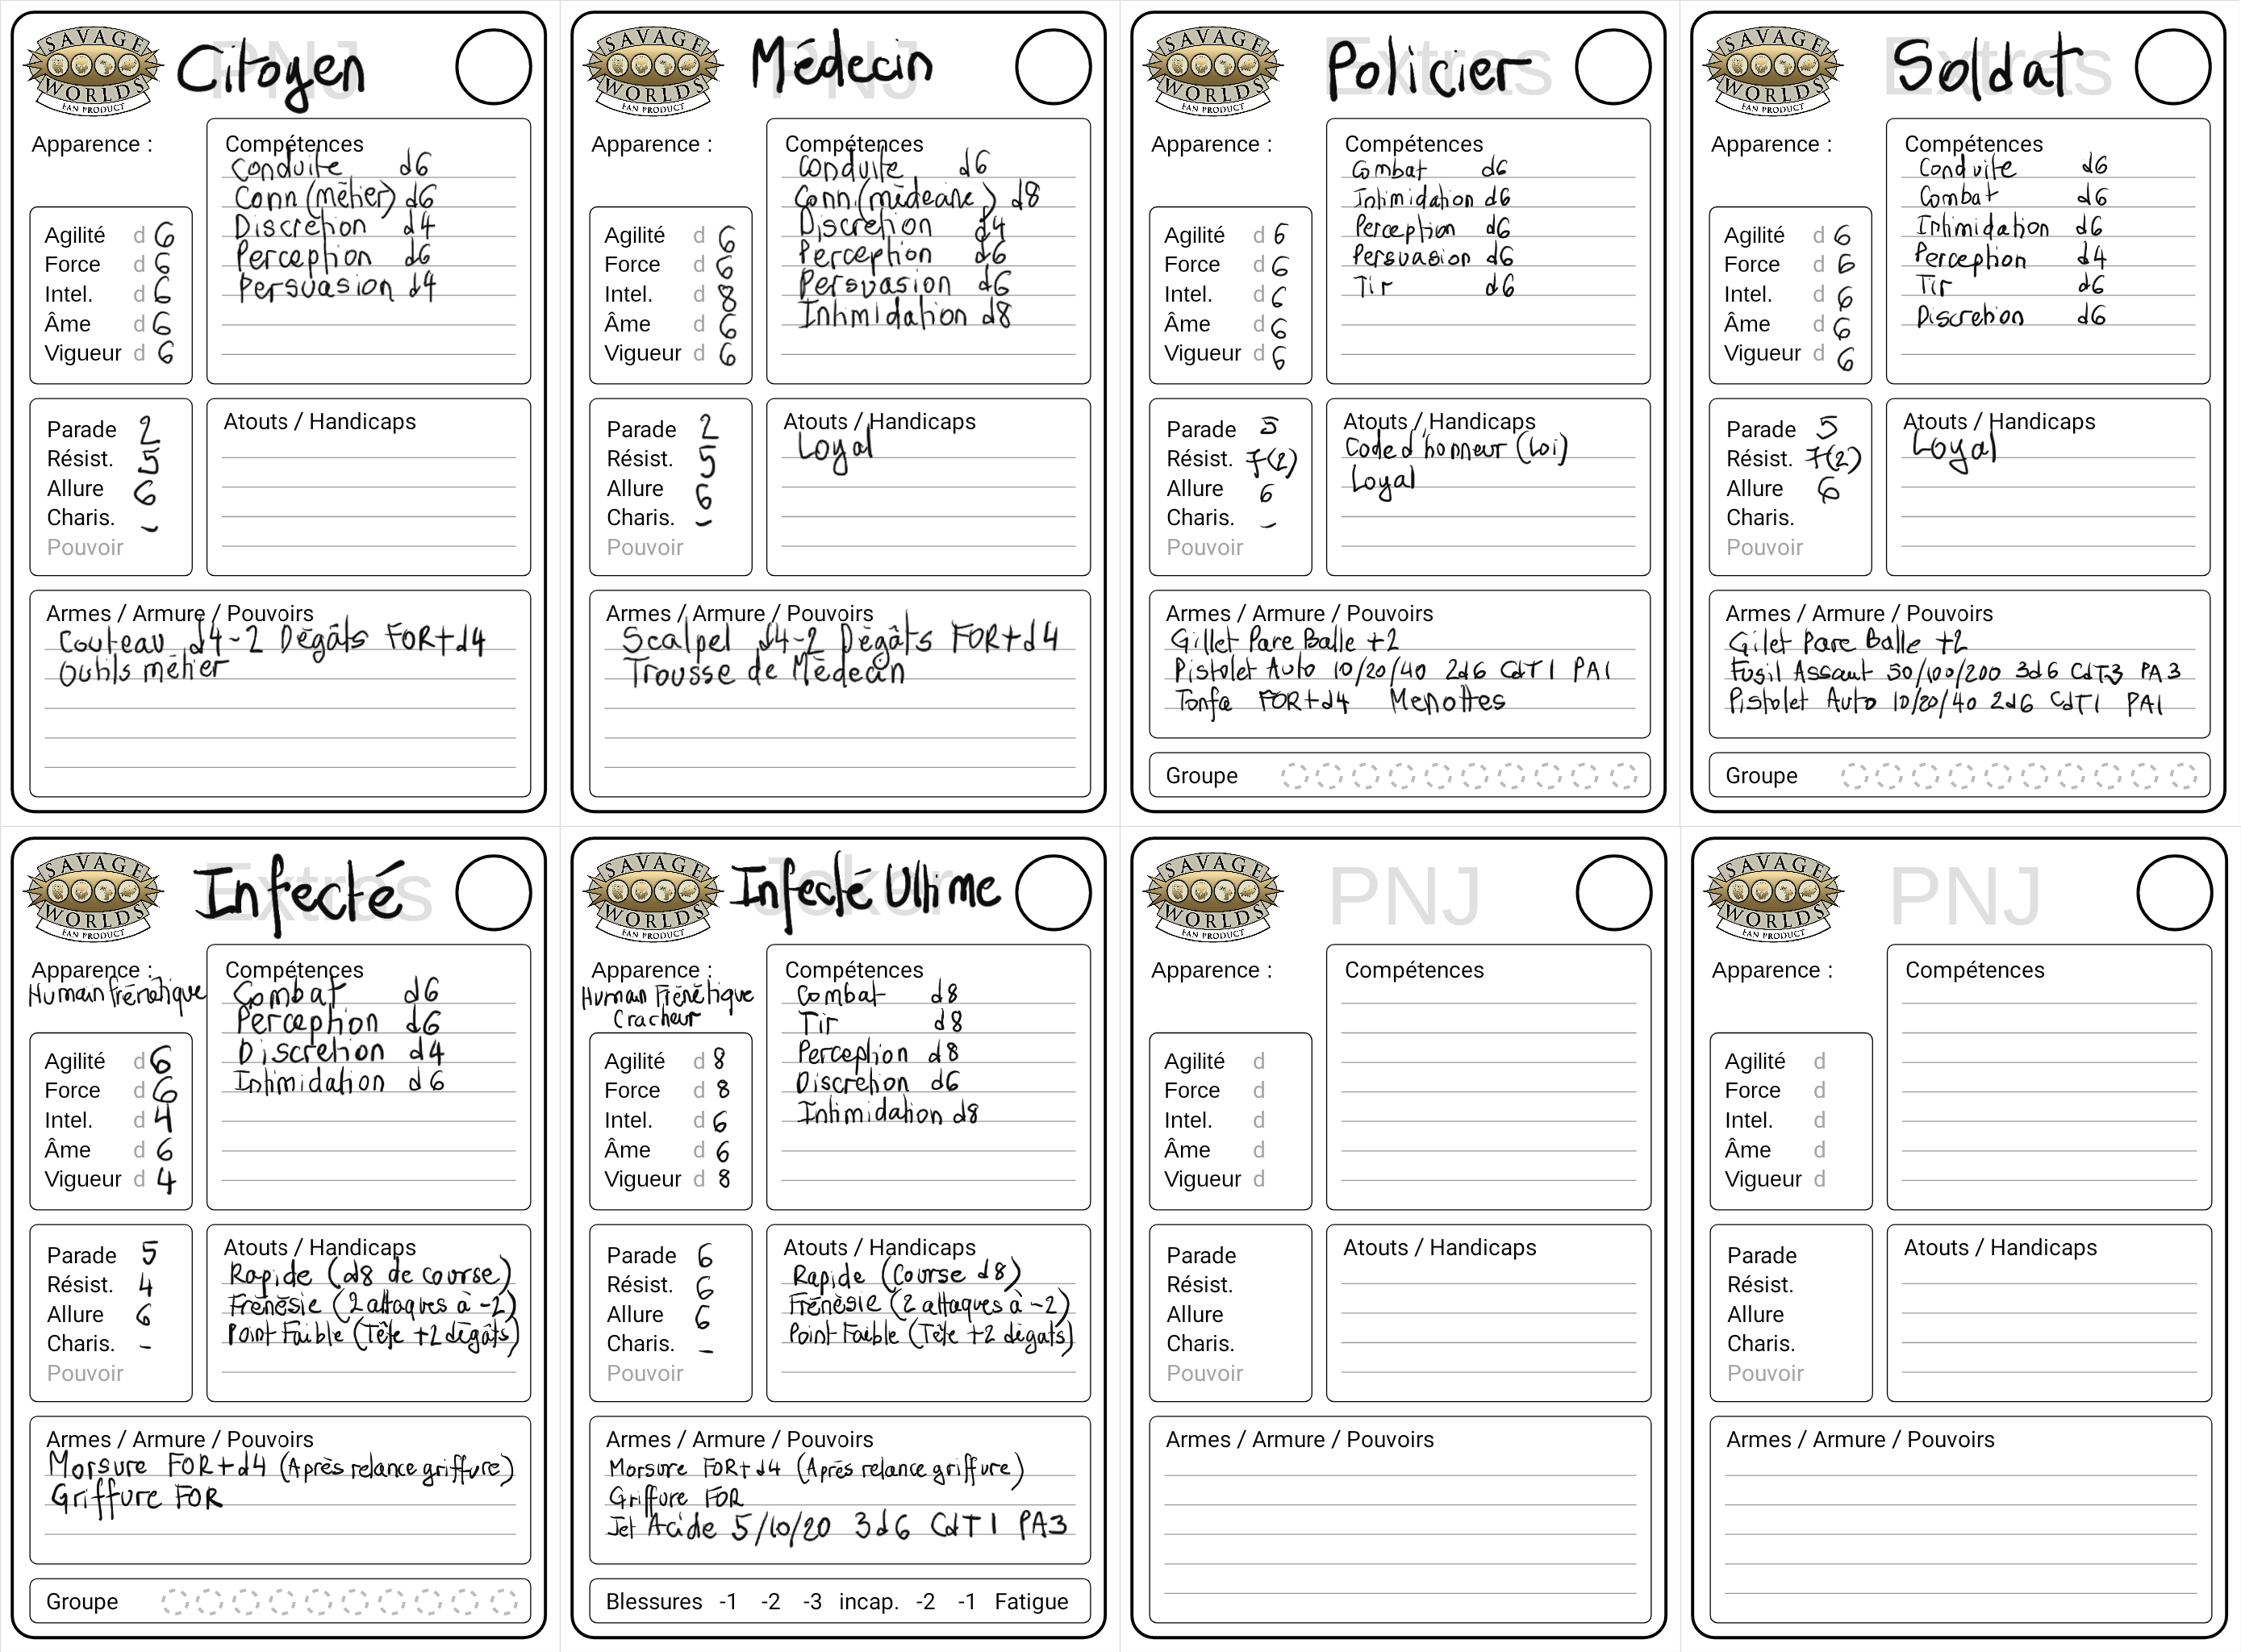 SAVAGE WORLDS
FAN PRODUCT
PNJ
Citoyen
Apparence :
Compétences
Conduite d6
Conn (métier) d6
Discretion d4
Perception d6
Persuasion d4
Agilité d 6
Force d 6
Intel. d 6
Âme d 6
Vigueur d 6
Parade 2
Résist. 5
Allure 6
Charis. -
Pouvoir
Atouts / Handicaps
Armes / Armure / Pouvoirs
Couteau d4-2 Dégâts FOR+d4
Outils métier
SAVAGE WORLDS
FAN PRODUCT
PNJ
Médecin
Apparence :
Compétences
Conduite d6
Conn (médecine) d8
Discretion d4
Perception d6
Persuasion d6
Intimidation d8
Agilité d 6
Force d 6
Intel. d 8
Âme d 6
Vigueur d 6
Parade 2
Résist. 5
Allure 6
Charis. -
Pouvoir
Atouts / Handicaps
Loyal
Armes / Armure / Pouvoirs
Scalpel d4-2 Dégâts FOR+d4
Trousse de Médecin
SAVAGE WORLDS
FAN PRODUCT
Extras
Policier
Apparence :
Compétences
Combat d6
Intimidation d6
Perception d6
Persuasion d6
Tir d6
Agilité d 6
Force d 6
Intel. d 6
Âme d 6
Vigueur d 6
Parade 5
Résist. 7(2)
Allure 6
Charis. -
Pouvoir
Atouts / Handicaps
Code d'honneur (Loi)
Loyal
Armes / Armure / Pouvoirs
Gillet Pare Balle +2
Pistolet Auto 10/20/40 2d6 CdT1 PA1
Tonfa FOR+d4 Menottes
Groupe
SAVAGE WORLDS
FAN PRODUCT
Extras
Soldat
Apparence :
Compétences
Conduite d6
Combat d6
Intimidation d6
Perception d4
Tir d6
Discretion d6
Agilité d 6
Force d 6
Intel. d 6
Âme d 6
Vigueur d 6
Parade 5
Résist. 7(2)
Allure 6
Charis.
Pouvoir
Atouts / Handicaps
Loyal
Armes / Armure / Pouvoirs
Gilet Pare Balle +2
Fusil Assaut 50/100/200 3d6 CdT3 PA3
Pistolet Auto 10/20/40 2d6 CdT1 PA1
Groupe
SAVAGE WORLDS
FAN PRODUCT
Extras
Infecté
Apparence :
Human frénétique
Compétences
Combat d6
Perception d6
Discretion d4
Intimidation d6
Agilité d 6
Force d 6
Intel. d 4
Âme d 6
Vigueur d 4
Parade 5
Résist. 4
Allure 6
Charis. -
Pouvoir
Atouts / Handicaps
Rapide (d8 de course)
Frénésie (2 attaques à -2)
Point Faible (Tête +2 dégâts)
Armes / Armure / Pouvoirs
Morsure FOR+d4 (Après relance griffure)
Griffure FOR
Groupe
SAVAGE WORLDS
FAN PRODUCT
Joker
Infecté Ultime
Apparence :
Human Frénétique
Cracheur
Compétences
Combat d8
Tir d8
Perception d8
Discretion d6
Intimidation d8
Agilité d 8
Force d 8
Intel. d 6
Âme d 6
Vigueur d 8
Parade 6
Résist. 6
Allure 6
Charis. -
Pouvoir
Atouts / Handicaps
Rapide (Course d8)
Frénésie (2 attaques à -2)
Point Faible (Tête +2 dégats)
Armes / Armure / Pouvoirs
Morsure FOR+d4 (Après relance griffure)
Griffure FOR
Jet Acide 5/10/20 3d6 CdT1 PA3
Blessures -1 -2 -3 incap. -2 -1 Fatigue
SAVAGE WORLDS
FAN PRODUCT
PNJ
Apparence :
Compétences
Agilité d
Force d
Intel. d
Âme d
Vigueur d
Parade
Résist.
Allure
Charis.
Pouvoir
Atouts / Handicaps
Armes / Armure / Pouvoirs
SAVAGE WORLDS
FAN PRODUCT
PNJ
Apparence :
Compétences
Agilité d
Force d
Intel. d
Âme d
Vigueur d
Parade
Résist.
Allure
Charis.
Pouvoir
Atouts / Handicaps
Armes / Armure / Pouvoirs